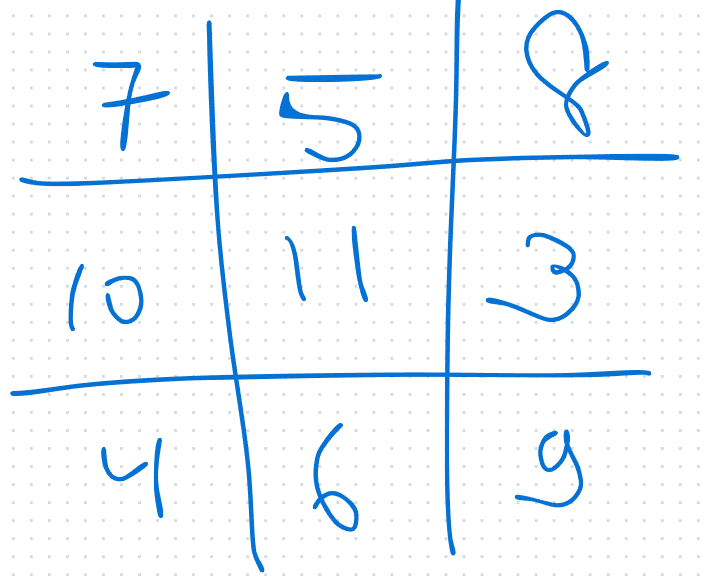 7 5 8
10 11 3
4 6 9